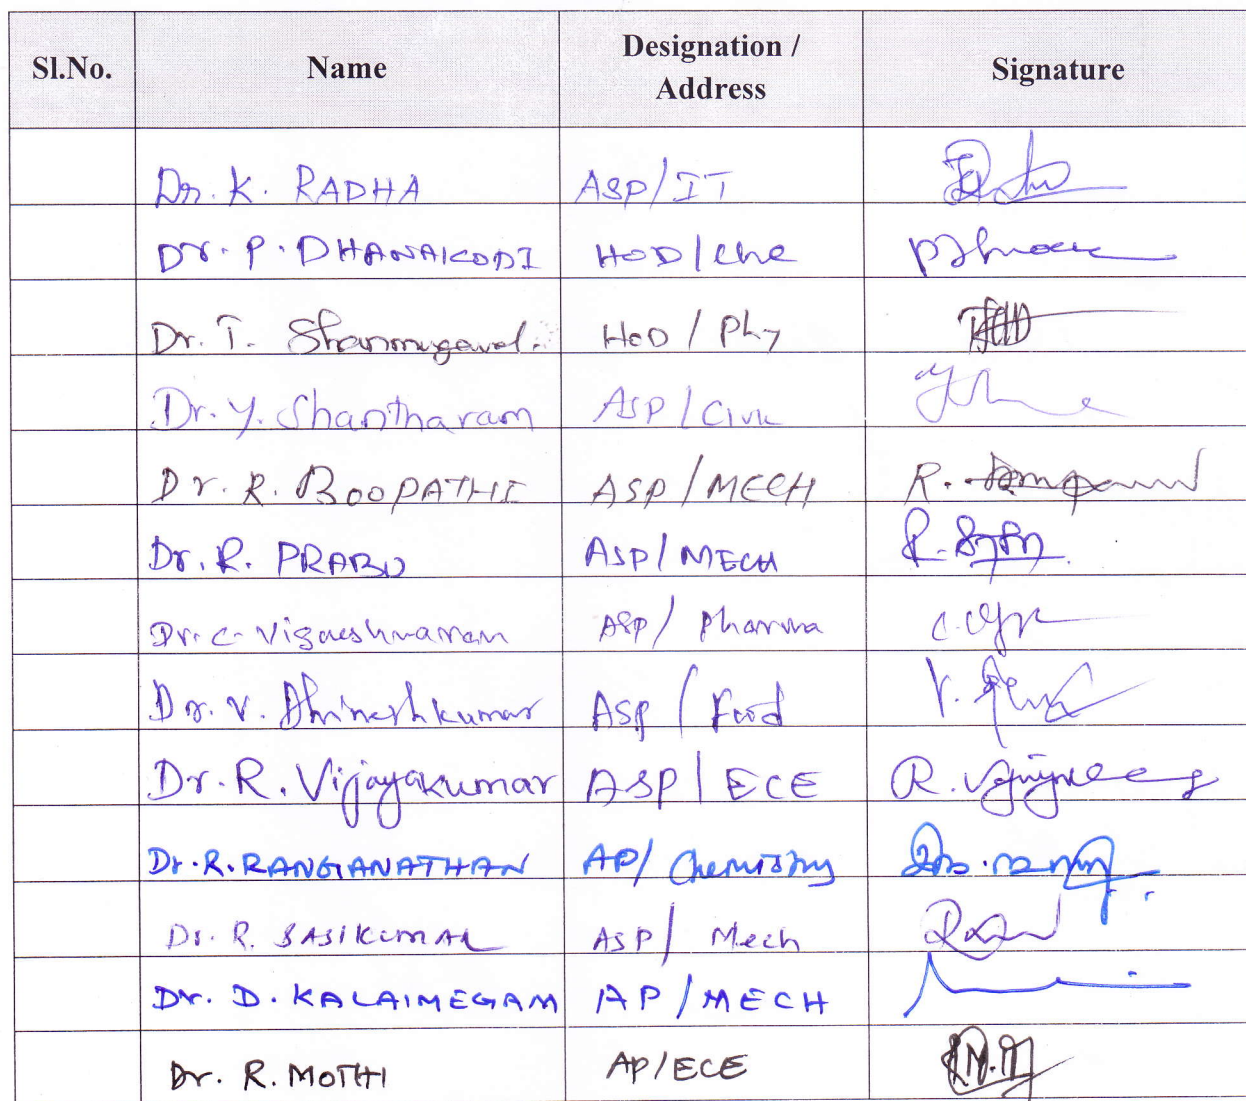 Sl.No. Name Designation / Address Signature
Dr. K. RADHA ASP/IT
Dr. P. DHANAKODI HOD/Che
Dr. T. Shanmugavel. HOD / Phy
Dr. Y. Shantharam ASP/Civil
Dr. R. BOOPATHI ASP/MECH R.
Dr. R. PRABU ASP/MECH R.
Dr. C. Vigneshwaran ASP/ Pharma
Dr. V. Dhineshkumar ASP / Food V.
Dr. R. Vijayakumar ASP / ECE R.
Dr. R. RANGANATHAN AP/ Chemistry
Dr. R. SASIKUMAR ASP/ Mech
Dr. D. KALAIMEGAM AP/MECH
Dr. R. MOTHI AP/ECE